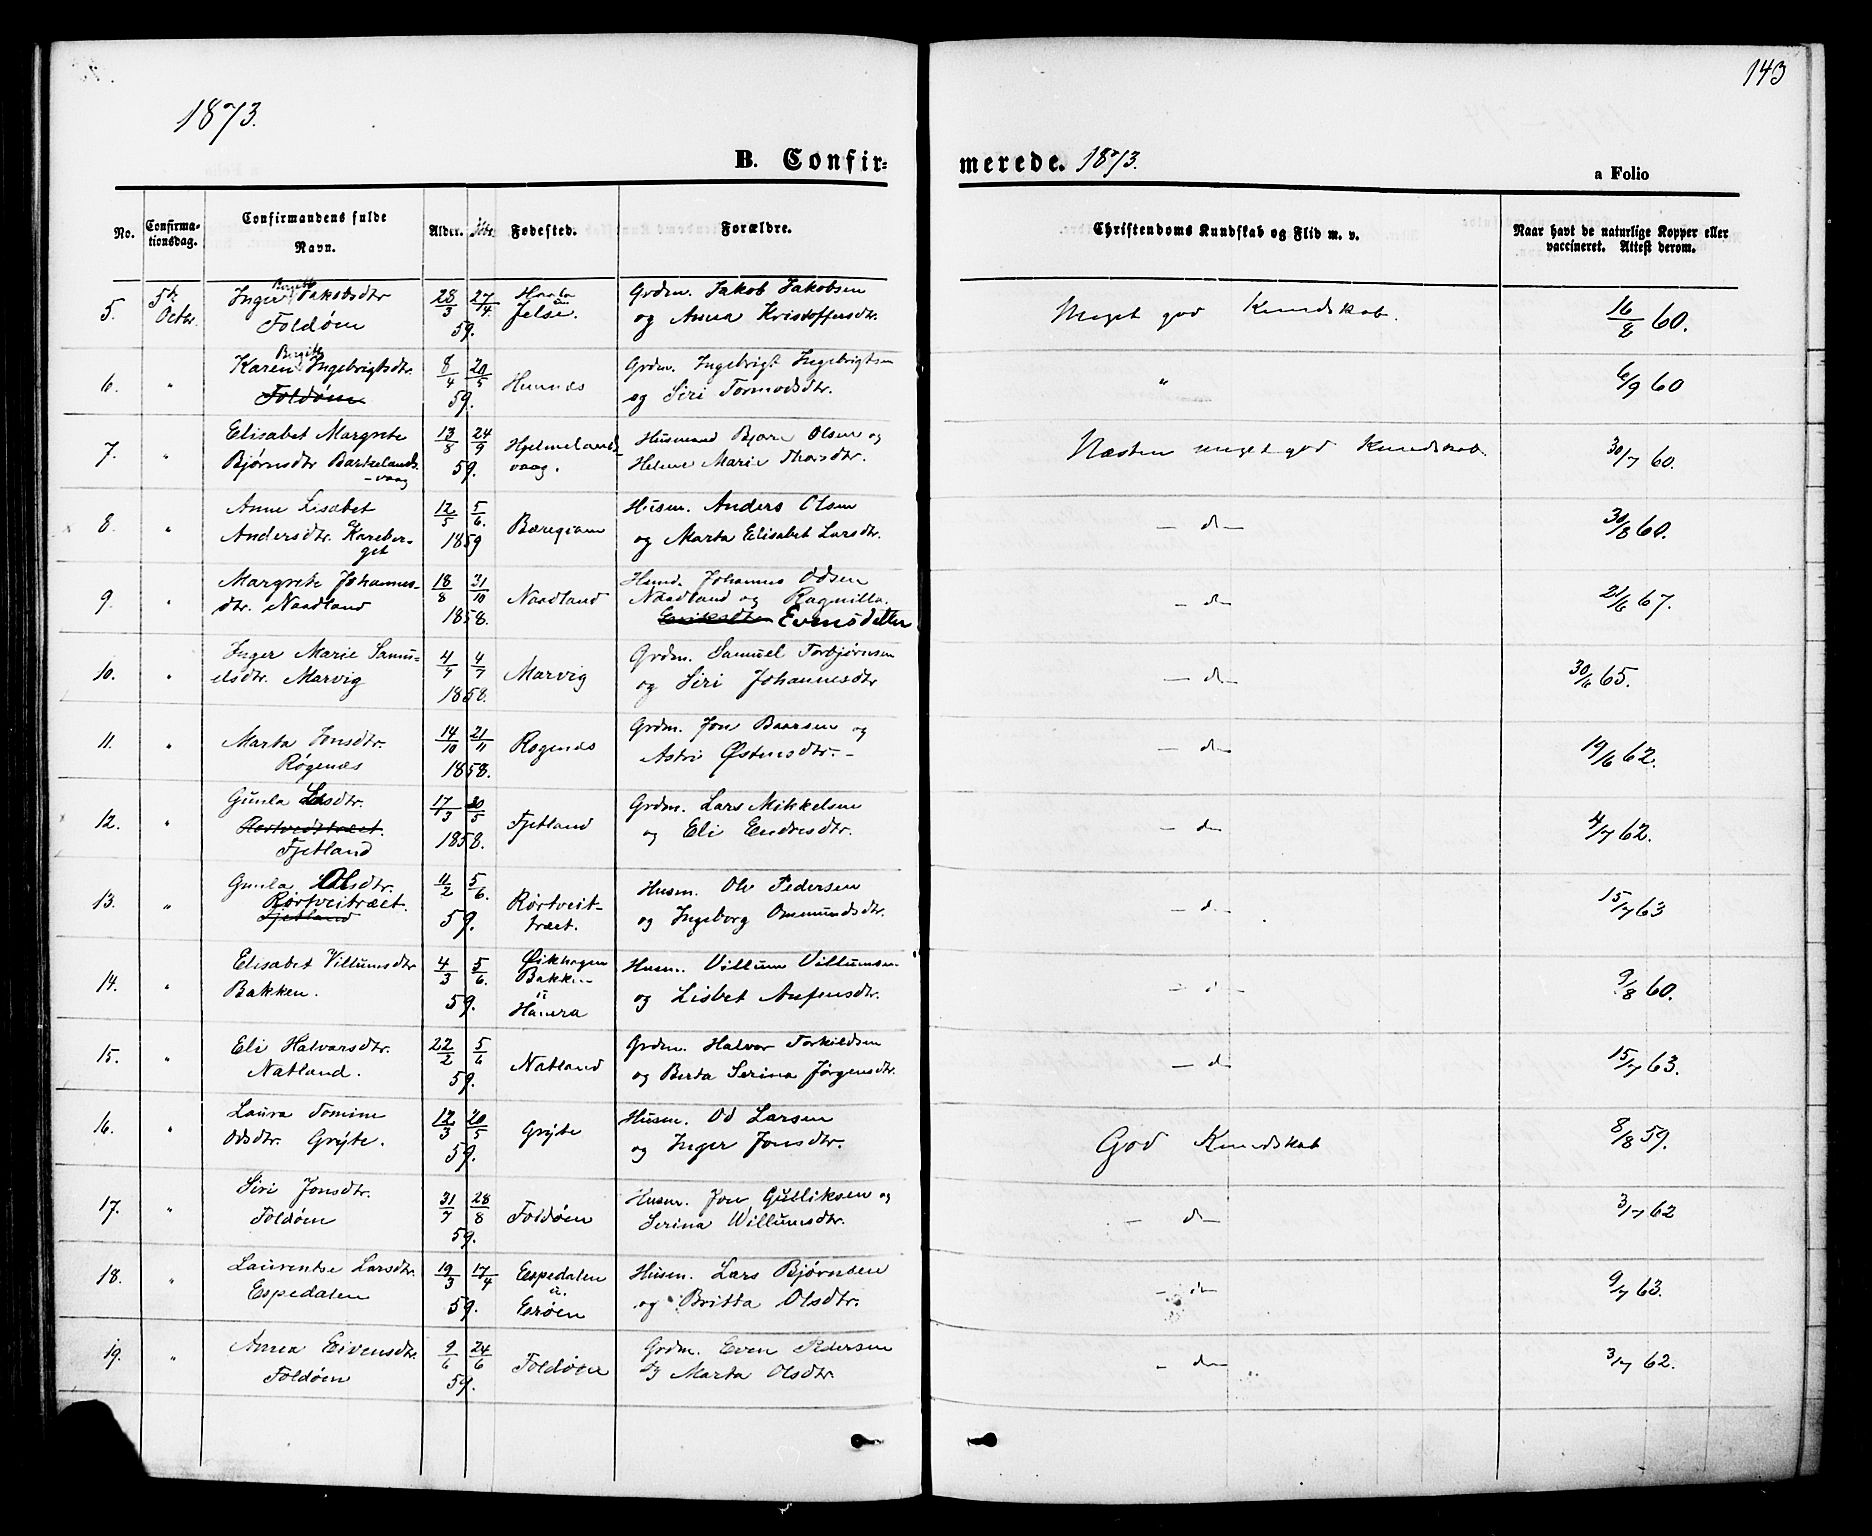 143
1873.
B. Confir-
merede. 1873.
a Folio
No.
Confirma-
tionsdag.
Confirmandens fulde
Navn.
Alder.
Fødested.
Forældre.
Christendoms Kundskab og Flid m. v.
Naar havt de naturlige Kopper eller
vaccineret. Attest derom.
5. 5te Octbr. Inger Beritte Jakobsdtr 28/3 27/4 Jelse. Grdm. Jakob Jakobsen Meget god Kundskab. 16/8 60.
Foldøen 59. og Anna Kristoffersdtr.
6. " Karen Birgitte Ingebrigtsdtr. 8/4 20/5 Grdm. Ingebrigt Ingebrigtsen " 6/9 60
Foldøen 59. og Siri Tormodsdtr.
7. " Elisabet Margrete 13/8 24/9 Hjelmelands- Husmand Bjørn Olsen og Næsten meget god Kundskab. 30/7 60.
Bjørnsdtr 59. vaag. Helene Marie Thorsdtr.
-vaag
8. " Anne Lisabet 12/5 5/6. Husm. Anders Olsen - do - 30/8 60.
Andersdtr. Kareber- 1859 og Marta Elisabet Larsdtr.
get
9. " Margrete Johannes- 18/8 31/10 Naadland Johannes Odsen - do 21/6 67.
dtr. Naadland 1858. Naadland og Ragnilla
Evensdatter
10. " Inger Marie Samu- 4/4 4/7 Marvig Grdm. Samuel Torbjørnsen - do - 30/6 65.
elsdtr. Marvig 1858. og Siri Johannesdtr
11. " Marta Jonsdtr. 14/10 21/11 Røgenæs Grdm. Jon Baarsen og - do 19/6 62.
Røgenæs 1858. Astri Østensdtr. -
12. " Gunla Larsdtr. 17/3 20/5 Fjetland Grdm. Lars Mikkelsen - do 4/7 62.
Rørtveittræet. 1858. og Eli Endresdtr.
Fjetland
13. " Gunla Olsdtr. 11/2 5/6. Rørtveit- Husm. Ole Pedersen - do - 15/7 63
Rørtveitræet. 59. træet. og Ingeborg Ommundsdtr.
Fjetland
14. " Elisabet Villumsdtr 4/3 5/6. Bakken Husm. Villum Villumsen 9/8 60.
Bakken. 59. og Lisbet
15. " Eli Halvorsdtr. 22/2 5/6 Natland Grdm. Halvor Torkildsen - do 15/7 63.
Natland. 59. og Berta Serina Jørgensdtr.
16. " Laura Tomine 12/3 20/5 Grÿte Husm. Od Larsen God Kundskab 8/8 59.
Odsdtr. Grÿte. 59. og Inger Jonsdtr.
17. " Siri Jonsdtr. 31/7 28/8 Foldøen Husm. Jon Gulliksen og - do 3/7 62
Foldøen 59. Serina Willumsdtr.
18. " Laurentse Larsdtr. 19/3 17/4 Espedalen Husm. Lars Bjørnsen - do 9/7 63.
Espedalen 59. u. Erøen og Britta Olsdtr.
19. " Anna Eivensdtr. 9/6 24/6 Foldøen Grdm. Even Pedersen - do 3/7 62.
Foldøen 59. og Marta Olsdtr.